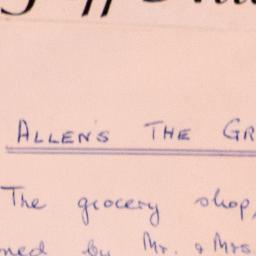 ALLEN'S THE GR
The grocery shop,
ned by Mr. & Mrs.